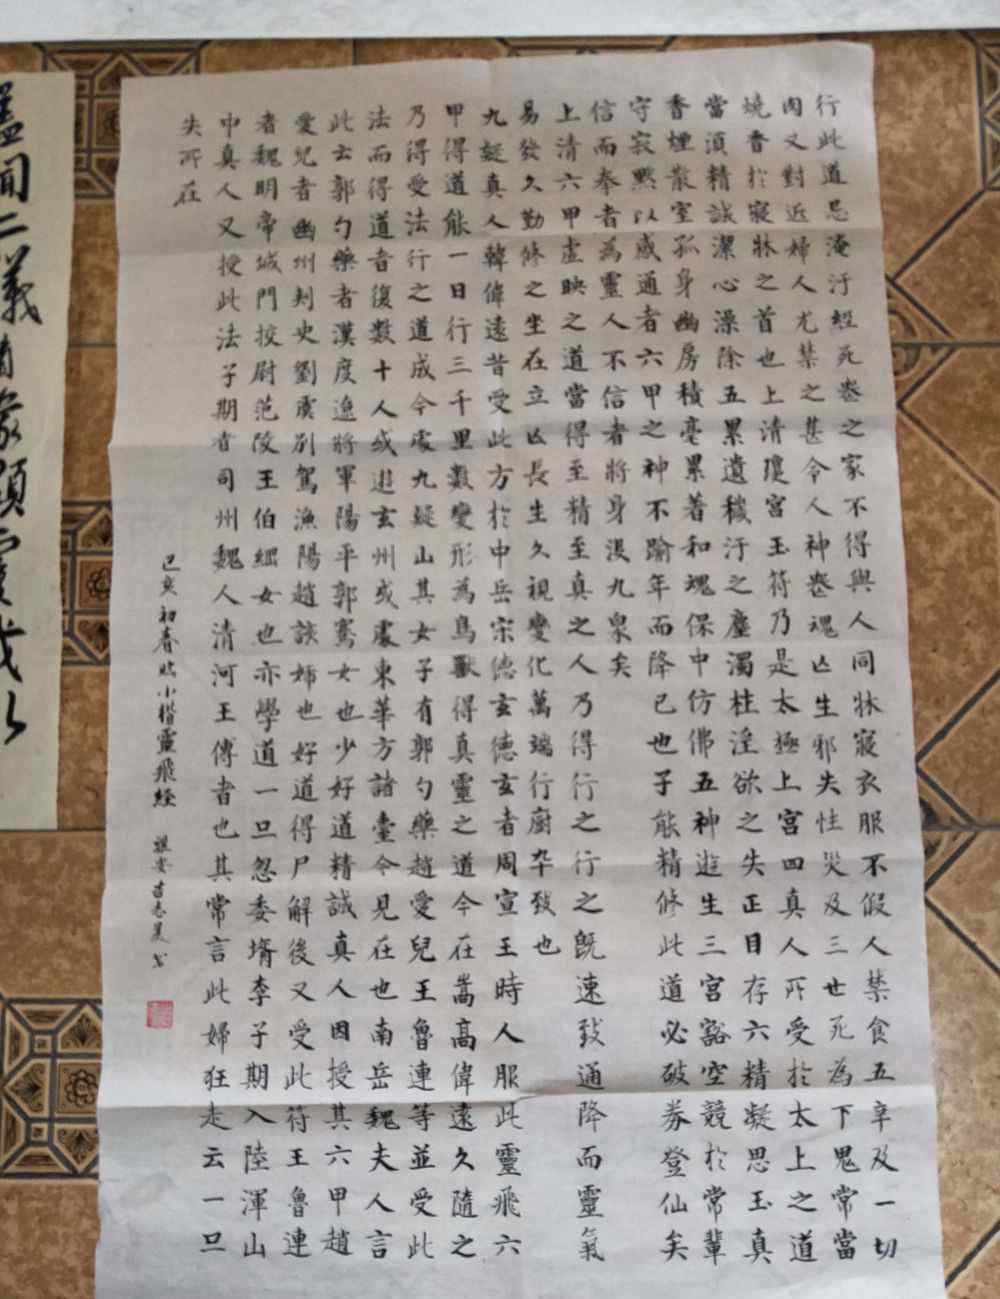 行此道忌淹汙經死喪之家不得與人同牀寢衣服不假人禁食五辛及一切
肉又對近婦人尤禁之甚令人神喪魂亡生邪失性災及三世死為下鬼常當
燒香於寢牀之首也上清瓊宮玉符乃是太極上宮四真人所受於太上之道
當須精誠潔心澡除五累遺穢汙之塵濁杜淫欲之失正目存六精凝思玉真
香煙散室孤身幽房積毫累著和魂保中仿佛五神遊生三宮豁空競於常輩
守寂默以感通者六甲之神不踰年而降已也子能精修此道必破券登仙矣
信而奉者為靈人不信者將身沒九泉矣
上清六甲虛映之道當得至精至真之人乃得行之行之既速致通降而靈氣
易發久勤修之坐在立亡長生久視變化萬端行廚卒致也
九疑真人韓偉遠昔受此方於中岳宗德玄德玄者周宣王時人服此靈飛六
甲得道能一日行三千里數變形為鳥獸得真靈之道今在嵩高偉遠久隨之
乃得受法行之道成今處九疑山其女子有郭勺藥趙愛兒王魯連等並受此
法而得道者復數十人或遊玄州或處東華方諸臺今見在也南岳魏夫人言
此云郭勺藥者漢度遼將軍陽平郭騫女也少好道精誠真人因授其六甲趙
愛兒者幽州刺史劉虞別駕漁陽趙該姊也好道得尸解後又受此符王魯連
者魏明帝城門校尉范陵王伯綱女也亦學道一旦忽委壻李子期入陸渾山
中真人又授此法子期者司州魏人清河王傳者也其常言此婦狂走云一旦
失所在
己亥初春臨小楷靈飛經
蓋聞二儀有象顯覆載以